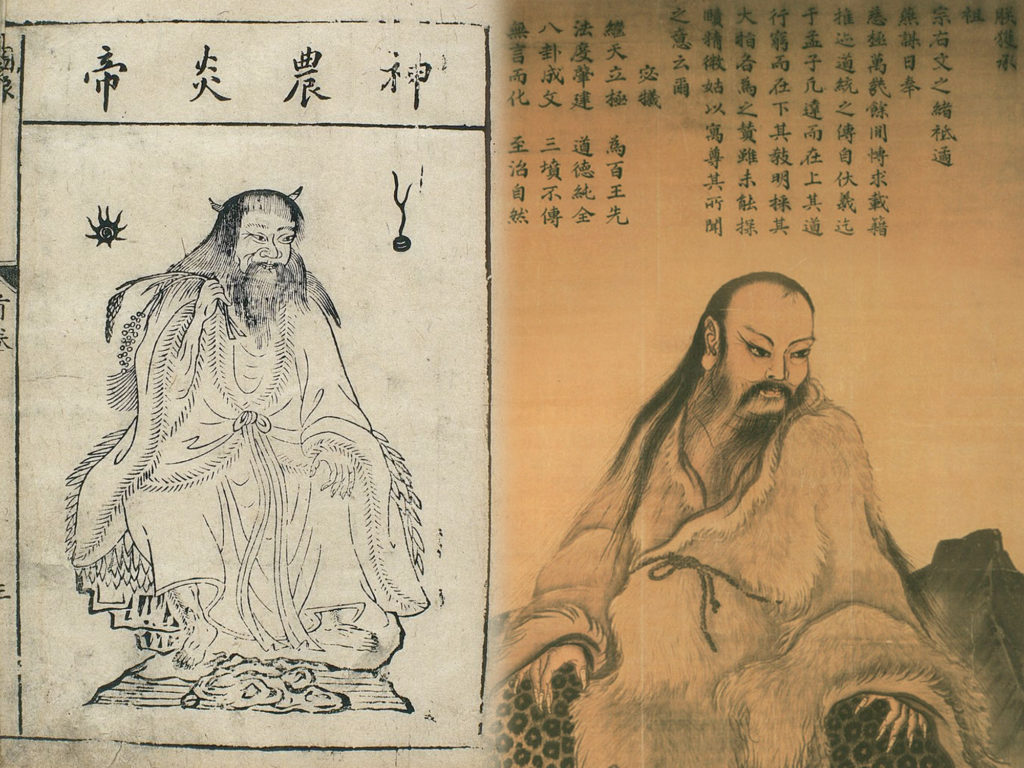 朕獲承
祖
宗右文之緒祗遹
燕謀日奉
慈極萬幾餘間博求載籍
推迹道統之傳自伏羲迄
于孟子凡達而在上其道
行窮而在下其教明採其
大指各為之贊雖未能探
賾精微姑以寓尊其所聞
之意云爾
宓犧
繼天立極 為百王先
法度肇建 道德純全
八卦成文 三墳不傳
無言而化 至治自然
神農炎帝